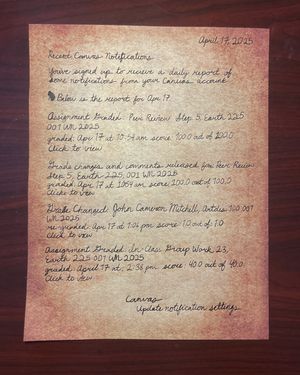 April 17, 2025
Recent Canvas Notifications
You've signed up to receive a daily report of
some notifications from your Canvas account.
Below is the report for Apr 17
Assignment Graded: Peer Review Step 5, Earth 225
001 WN 2025
graded: Apr 17 at 10:54 am score: 100.0 out of 100.0
Click to view
Grade changes and comments released for: Peer Review
Step 5, Earth 225, 001 WN 2025
graded: Apr 17 at 1054 am score: 100.0 out of 100.0
Click to view
Grade Changed: John Cameron Mitchell, Artdes 100 001
WN 2025
re-graded: Apr 17 at 1:04 pm score: 1.0 out of 1.0
Click to view
Assignment Graded: In Class Group Work 23,
Earth 225 001 WN 2025
graded: April 17 at 2:38 pm score: 40.0 out of 40.0
Click to view
Canvas
Update notification settings